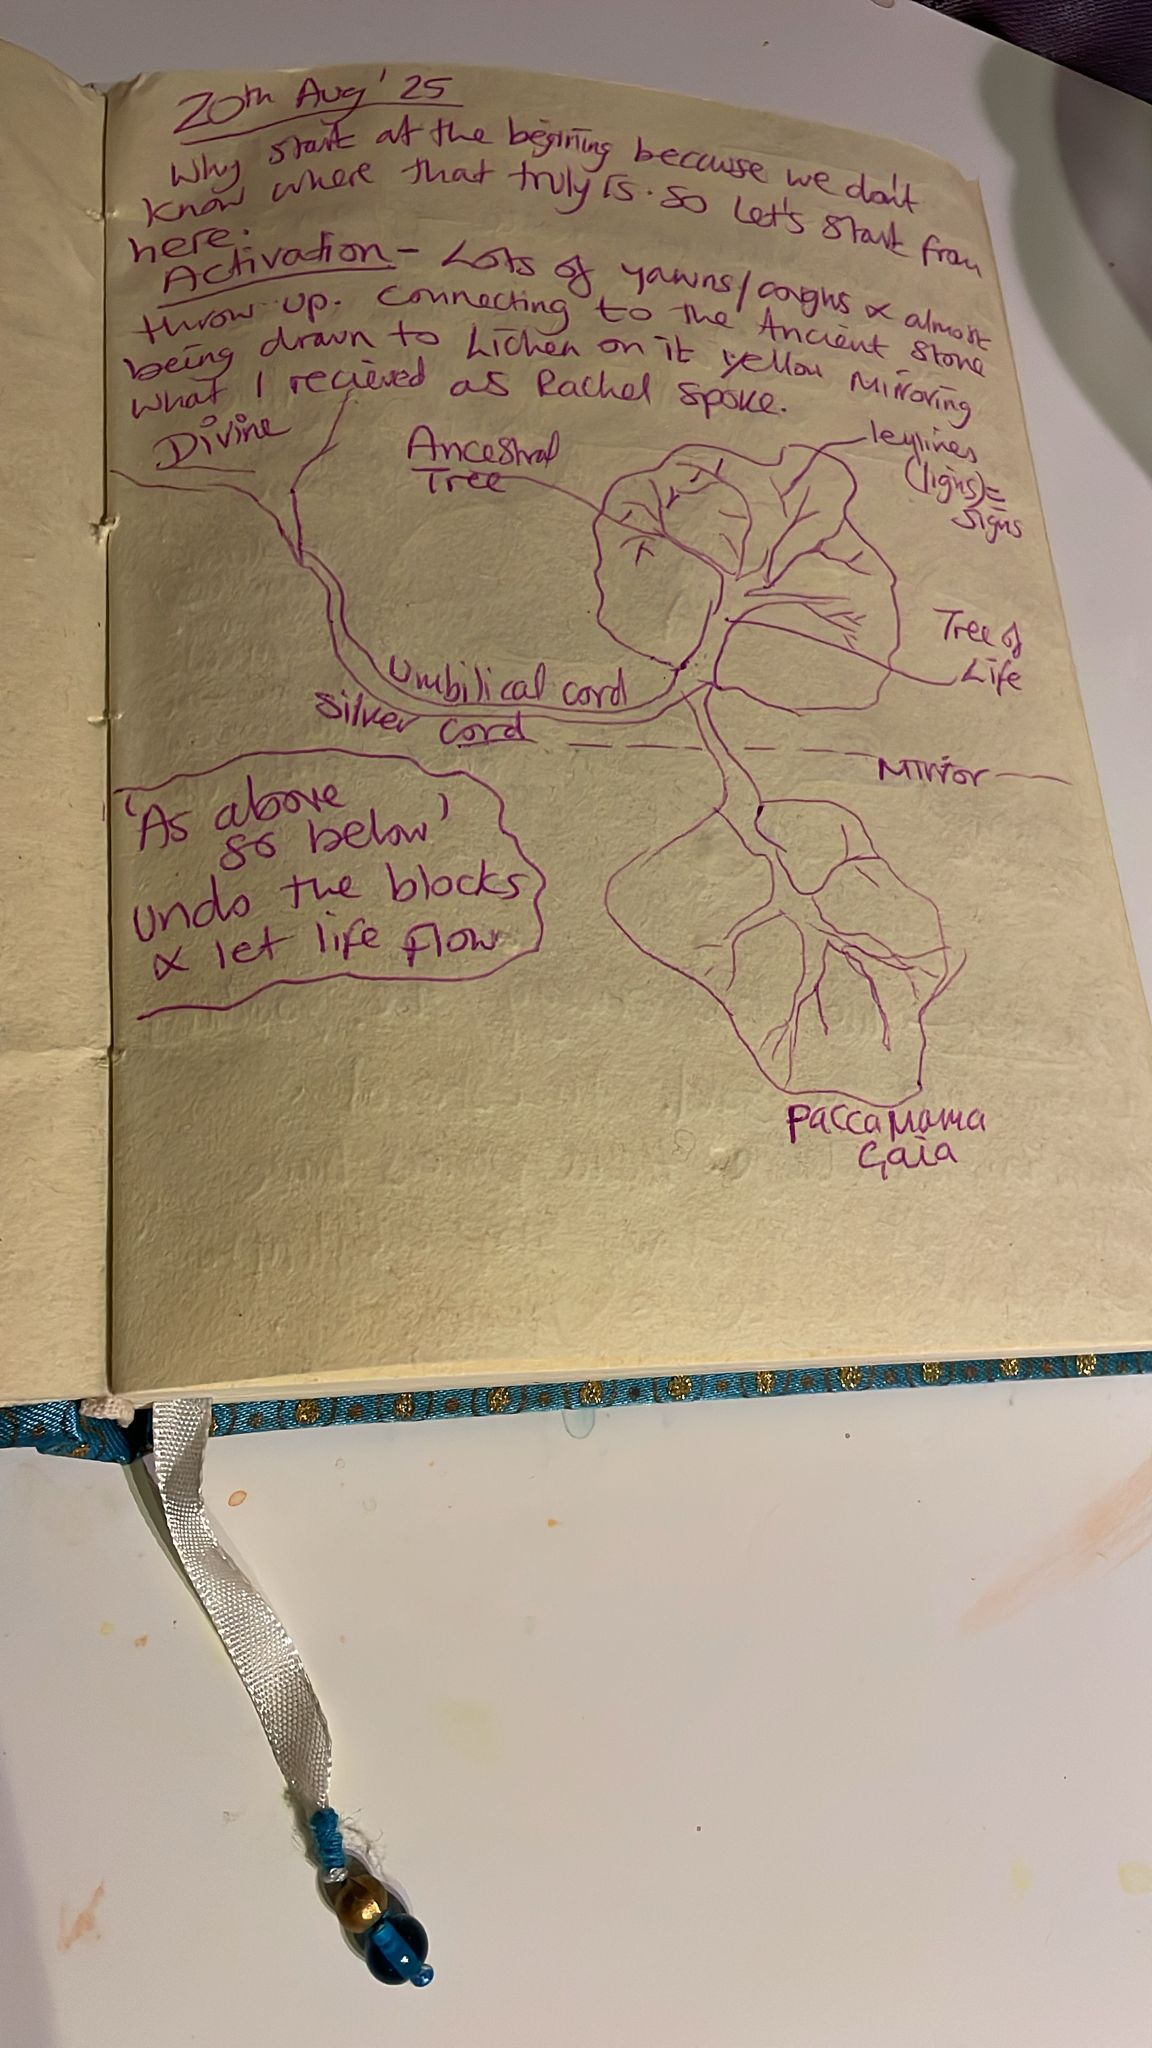 20th Aug '25
Why start at the begining because we don't
know where that truly is. So Let's start from
here.
Activation - Lots of yawns/coughs & almost
throw up. Connecting to the Ancient Stone
being drawn to Lichen on it yellow Mirroring
what I recieved as Rachel spoke.
Divine
Ancestral
Tree
leylines
(ligns)=
signs
Tree of
Life
Umbilical cord
Silver cord
Mirror
'As above
so below'
undo the blocks
& let life flow
Paccamama
Gaia